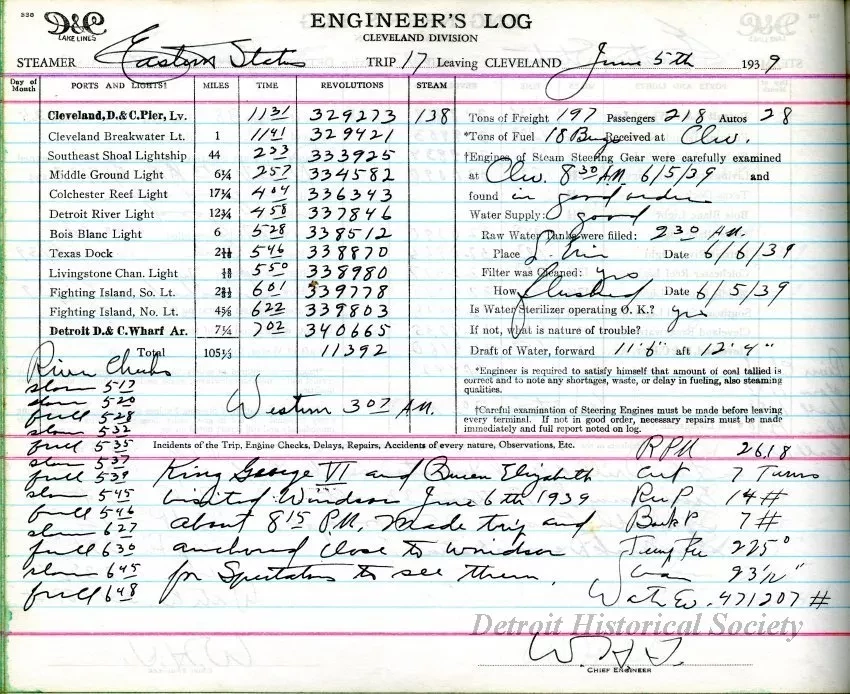 336
D&C
LAKE LINES
ENGINEER'S LOG
CLEVELAND DIVISION
STEAMER Eastern States TRIP 17 Leaving CLEVELAND June 5th 1939
Day of Month PORTS AND LIGHTS! MILES TIME REVOLUTIONS STEAM
Cleveland, D. & C. Pier, Lv. 11 31 329273 138
Cleveland Breakwater Lt. 1 11 41 329421
Southeast Shoal Lightship 44 2 33 333925
Middle Ground Light 6¼ 2 57 334582
Colchester Reef Light 17¼ 4 04 336343
Detroit River Light 12¾ 4 58 337846
Bois Blanc Light 6 5 28 338512
Texas Dock 5 46 338870
Livingstone Chan. Light 5 50 338980
Fighting Island, So. Lt. 6 01 339778
Fighting Island, No. Lt. 6 22 339803
Detroit D. & C. Wharf Ar. 7¼ 7 02 340665
Total 105½ 11392
Tons of Freight 197 Passengers 218 Autos 28
*Tons of Fuel 18 Received at Clev.
†Engines of Steam Steering Gear were carefully examined
at Clev. 8 30 AM 6/5/39 and
found in good order
Water Supply: good
Raw Water Tanks were filled: 2 30 AM.
Place Date 6/6/39
Filter was Cleaned: yes
How flushed Date 6/5/39
Is Water Sterilizer operating O. K.? yes
If not, what is nature of trouble?
Draft of Water, forward 11'6" aft 12'4"
*Engineer is required to satisfy himself that amount of coal tallied is
correct and to note any shortages, waste, or delay in fueling, also steaming
qualities.
†Careful examination of Steering Engines must be made before leaving
every terminal. If not in good order, necessary repairs must be made
immediately and full report noted on log.
River Checks
slow 5 17
slow 5 20
full 5 28
slow 5 32
full 5 35
slow 5 37
full 5 39
slow 5 45
full 5 46
slow 6 27
full 6 30
slow 6 45
full 6 48
Western 3 07 AM.
Incidents of the Trip, Engine Checks, Delays, Repairs, Accidents of every nature, Observations, Etc.
King George VI and Queen Elizabeth
visited Windsor June 6th 1939
about 8 15 P.M. Made trip and
anchored close to Windsor
for Spectators to see them.
RPM 26.18
Cut 7 Turns
Rec P 14 #
Back P 7 #
Temp 225°
23 ½"
Wat Ev. 471207 #
Detroit Historical Society
CHIEF ENGINEER